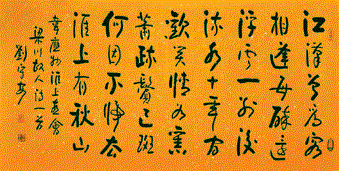 江漢曾為客
相逢每醉還
浮雲一別後
流水十年間
歡笑情如舊
蕭疏鬢已斑
何因不歸去
淮上有秋山
韋應物淮上喜會
梁川故人詩一首
劉